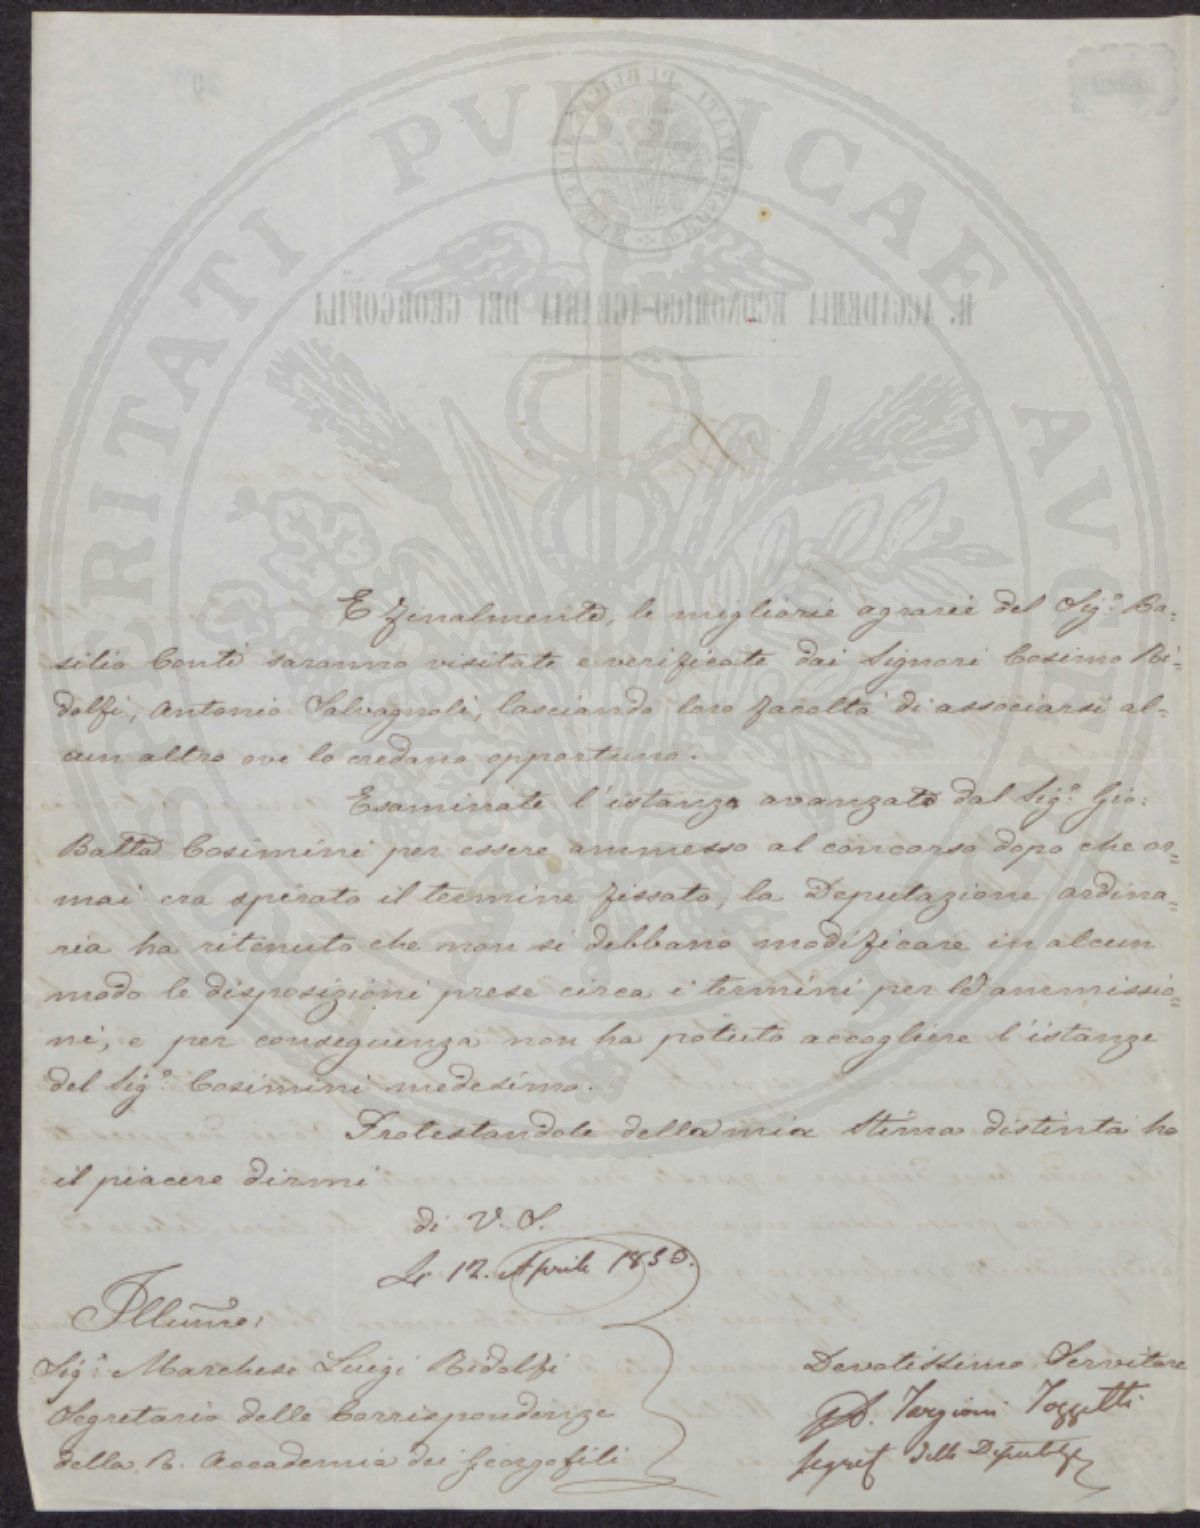 PROSPERITATI PUBLICAE AUGENDAE
R. ACCADEMIA ECONOMICO-AGRARIA DEI GEORGOFILI
E finalmente, le migliorie agrarie del Sig.r Ba-
silio Conti saranno visitate e verificate dai Signori Cosimo Ri=
dolfi, Antonio Salvagnoli, lasciando loro facoltà di associarsi al=
cun altro ove lo credano opportuno.
Esaminate l'istanza avanzata dal Sig.r Gio:
Batta Cosimini per essere ammesso al concorso dopo che or=
mai era spirato il termine fissato, la Deputazione ordina=
ria ha ritenuto che non si debbano modificare in alcun
modo le disposizioni prese circa i termini per le ammissio=
ni, e per conseguenza non ha potuto accogliere l'istanze
del Sig.r Cosimini medesimo.
Protestandole della mia stima distinta ho
il piacere dirmi
di V. S.
Li 12. Aprile 1855.
Illumo:
Sig.r Marchese Luigi Ridolfi
Segretario delle Corrispondenze
della R. Accademia dei Georgofili
Devotissimo Servitore
Targioni Tozzetti
Segret della Deputaze